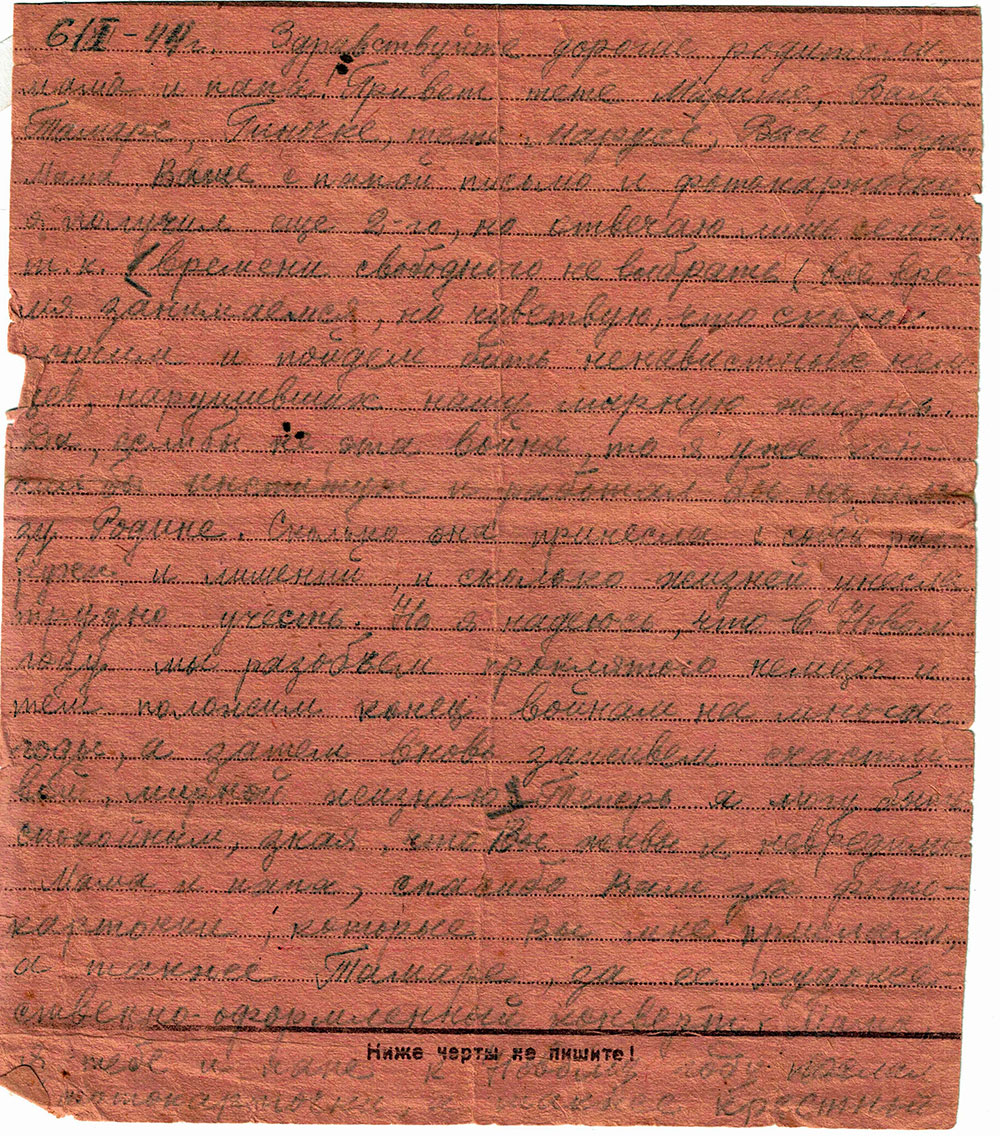 6/I-44г. Здравствуйте дорогие родители,
мама и папа! Привет тете Марише, Вале
Тамаре, Гиночке, тете Марусе, Васе и
Мама, Ваше с папой письмо и фотокарточки
я получил еще 2-го, но отвечаю лишь сегодня
т.к. времени свободного не выбрать (все вре-
мя занимаемся, но чувствую, что скоро
кончим и пойдем бить ненавистных нем
цев, нарушивших нашу мирную жизнь.
Да, если бы не эта война, то я уже кон-
чил бы институт и работал бы на поль
зу Родине. Сколько она принесла с собой раз
рухи и лишений, и сколько жизней унесла
трудно учесть. Но я надеюсь, что в Новом
году мы разобьем проклятого немца и
тем положим конец войнам на многие
годы, а затем вновь заживем счастли
вой, мирной жизнью. Теперь я могу быть
спокойным, зная, что Вы живы и невредимы.
Мама и папа, спасибо Вам за фото-
карточки, которые вы мне прислали,
а также Тамаре, за ее художе-
ственно оформленный конверт. Мама,
Ниже черты не пишите!
я тебе и папе к Новому году послал
фотокарточки, а также крестный